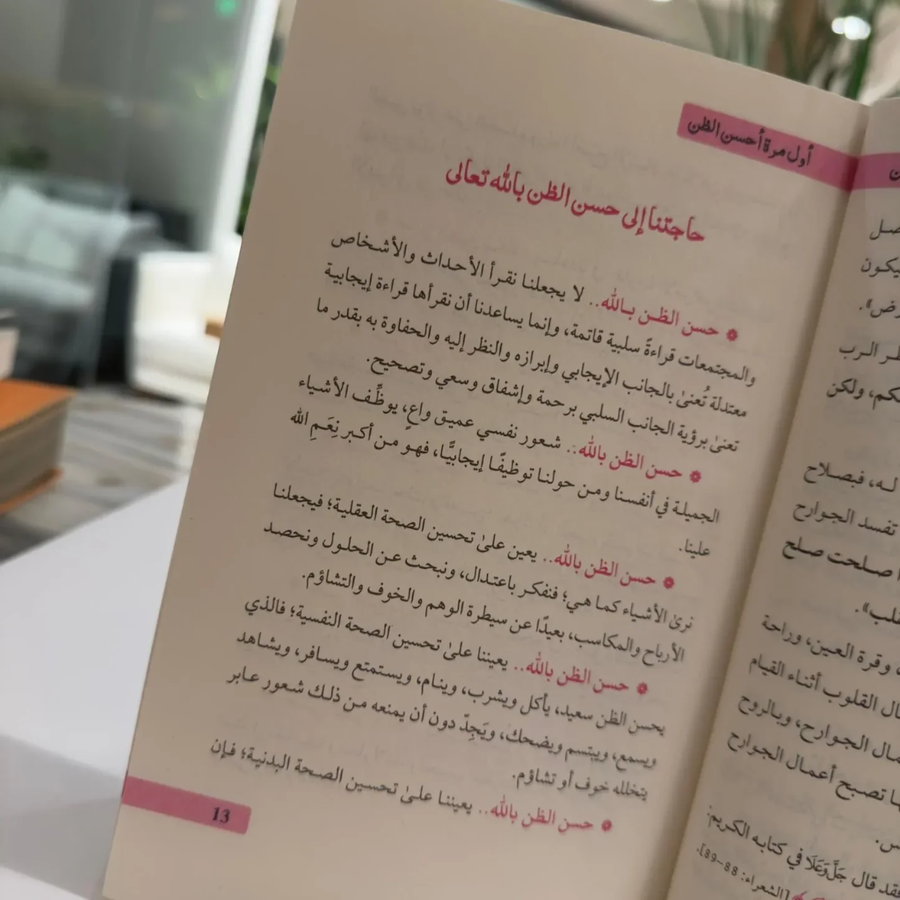 أول مرة أحسن الظن
حاجتنا إلى حسن الظن بالله تعالى
حسن الظن بالله.. لا يجعلنا نقرأ الأحداث والأشخاص
والمجتمعات قراءةً سلبية قاتمة، وإنما يساعدنا أن نقرأها قراءة إيجابية
معتدلة تُعنىٰ بالجانب الإيجابي وإبرازه والنظر إليه والحفاوة به بقدر ما
تعنىٰ برؤية الجانب السلبي برحمة وإشفاق وسعي وتصحيح.
حسن الظن بالله.. شعور نفسي عميق واعٍ، يوظِّف الأشياء
الجميلة في أنفسنا ومن حولنا توظيفًا إيجابيًّا، فهو من أكبر نِعَمِ الله
علينا.
حسن الظن بالله.. يعين علىٰ تحسين الصحة العقلية؛ فيجعلنا
نرىٰ الأشياء كما هي؛ فنفكر باعتدال، ونبحث عن الحلول ونحصد
الأرباح والمكاسب، بعيدًا عن سيطرة الوهم والخوف والتشاؤم.
حسن الظن بالله.. يعيننا علىٰ تحسين الصحة النفسية؛ فالذي
يحسن الظن سعيد، يأكل ويشرب، وينام، ويستمتع ويسافر، ويشاهد
ويسمع، ويبتسم ويضحك، ويَجِدّ دون أن يمنعه من ذلك شعور عابر
يتخلله خوف أو تشاؤم.
حسن الظن بالله.. يعيننا علىٰ تحسين الصحة البدنية؛ فإن
13
يكون
الرب
ولكن
له، فبصلاح
تفسد الجوارح
صلحت صلح
وقرة العين، وراحة
القلوب أثناء القيام
الجوارح، وبالروح
تصبح أعمال الجوارح
فقد قال جَلَّ وَعَلَا في كتابه الكريم:
[الشعراء: 88-89].